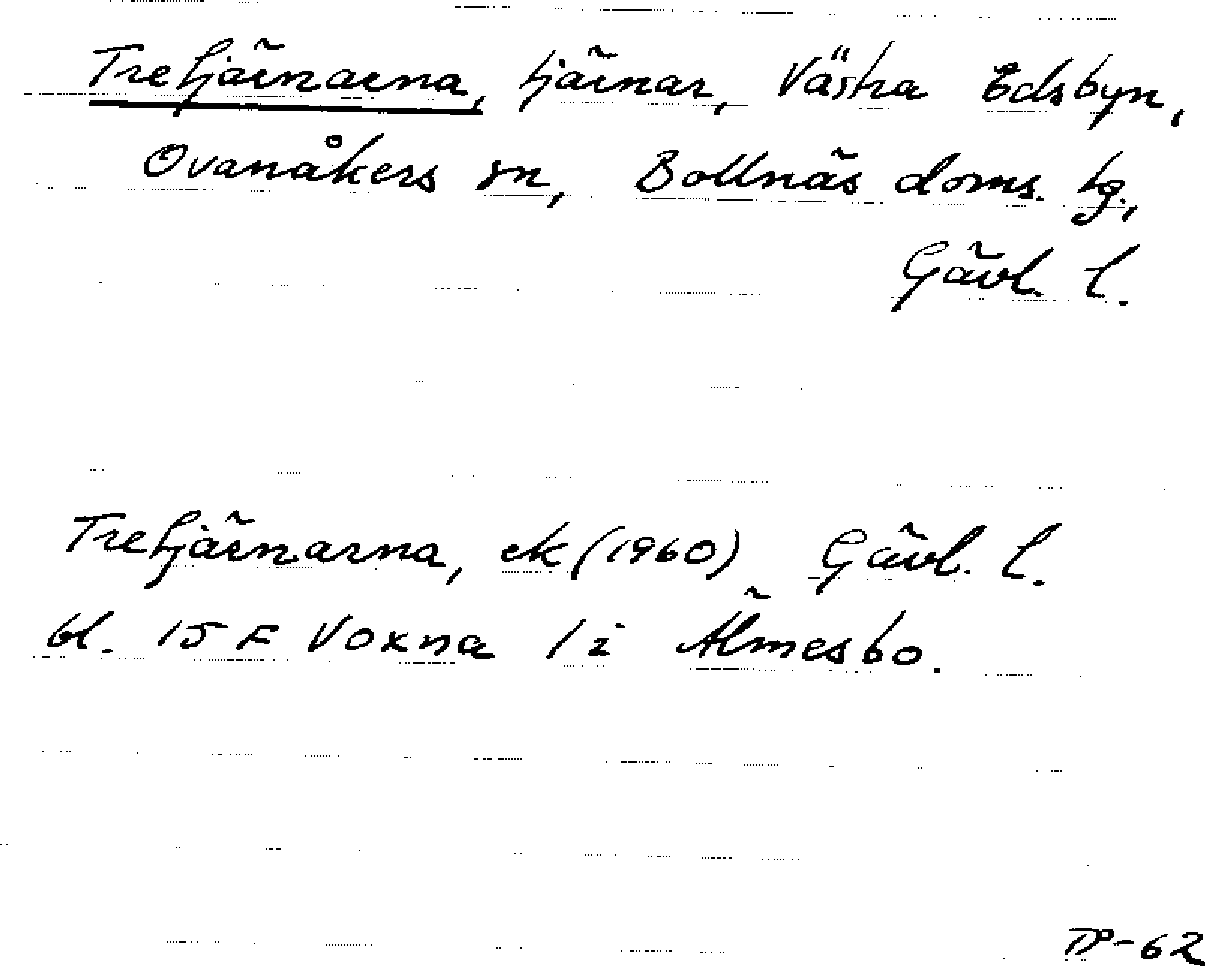 Tretjärnarna, tjärnar, Västra Edsbyn,
Ovanåkers sn, Bollnäs doms. tg.,
Gävl. l.
Tretjärnarna, ek (1960) Gävl. l.
bl. 15 F Voxna 1 i Älmesbo.
-62